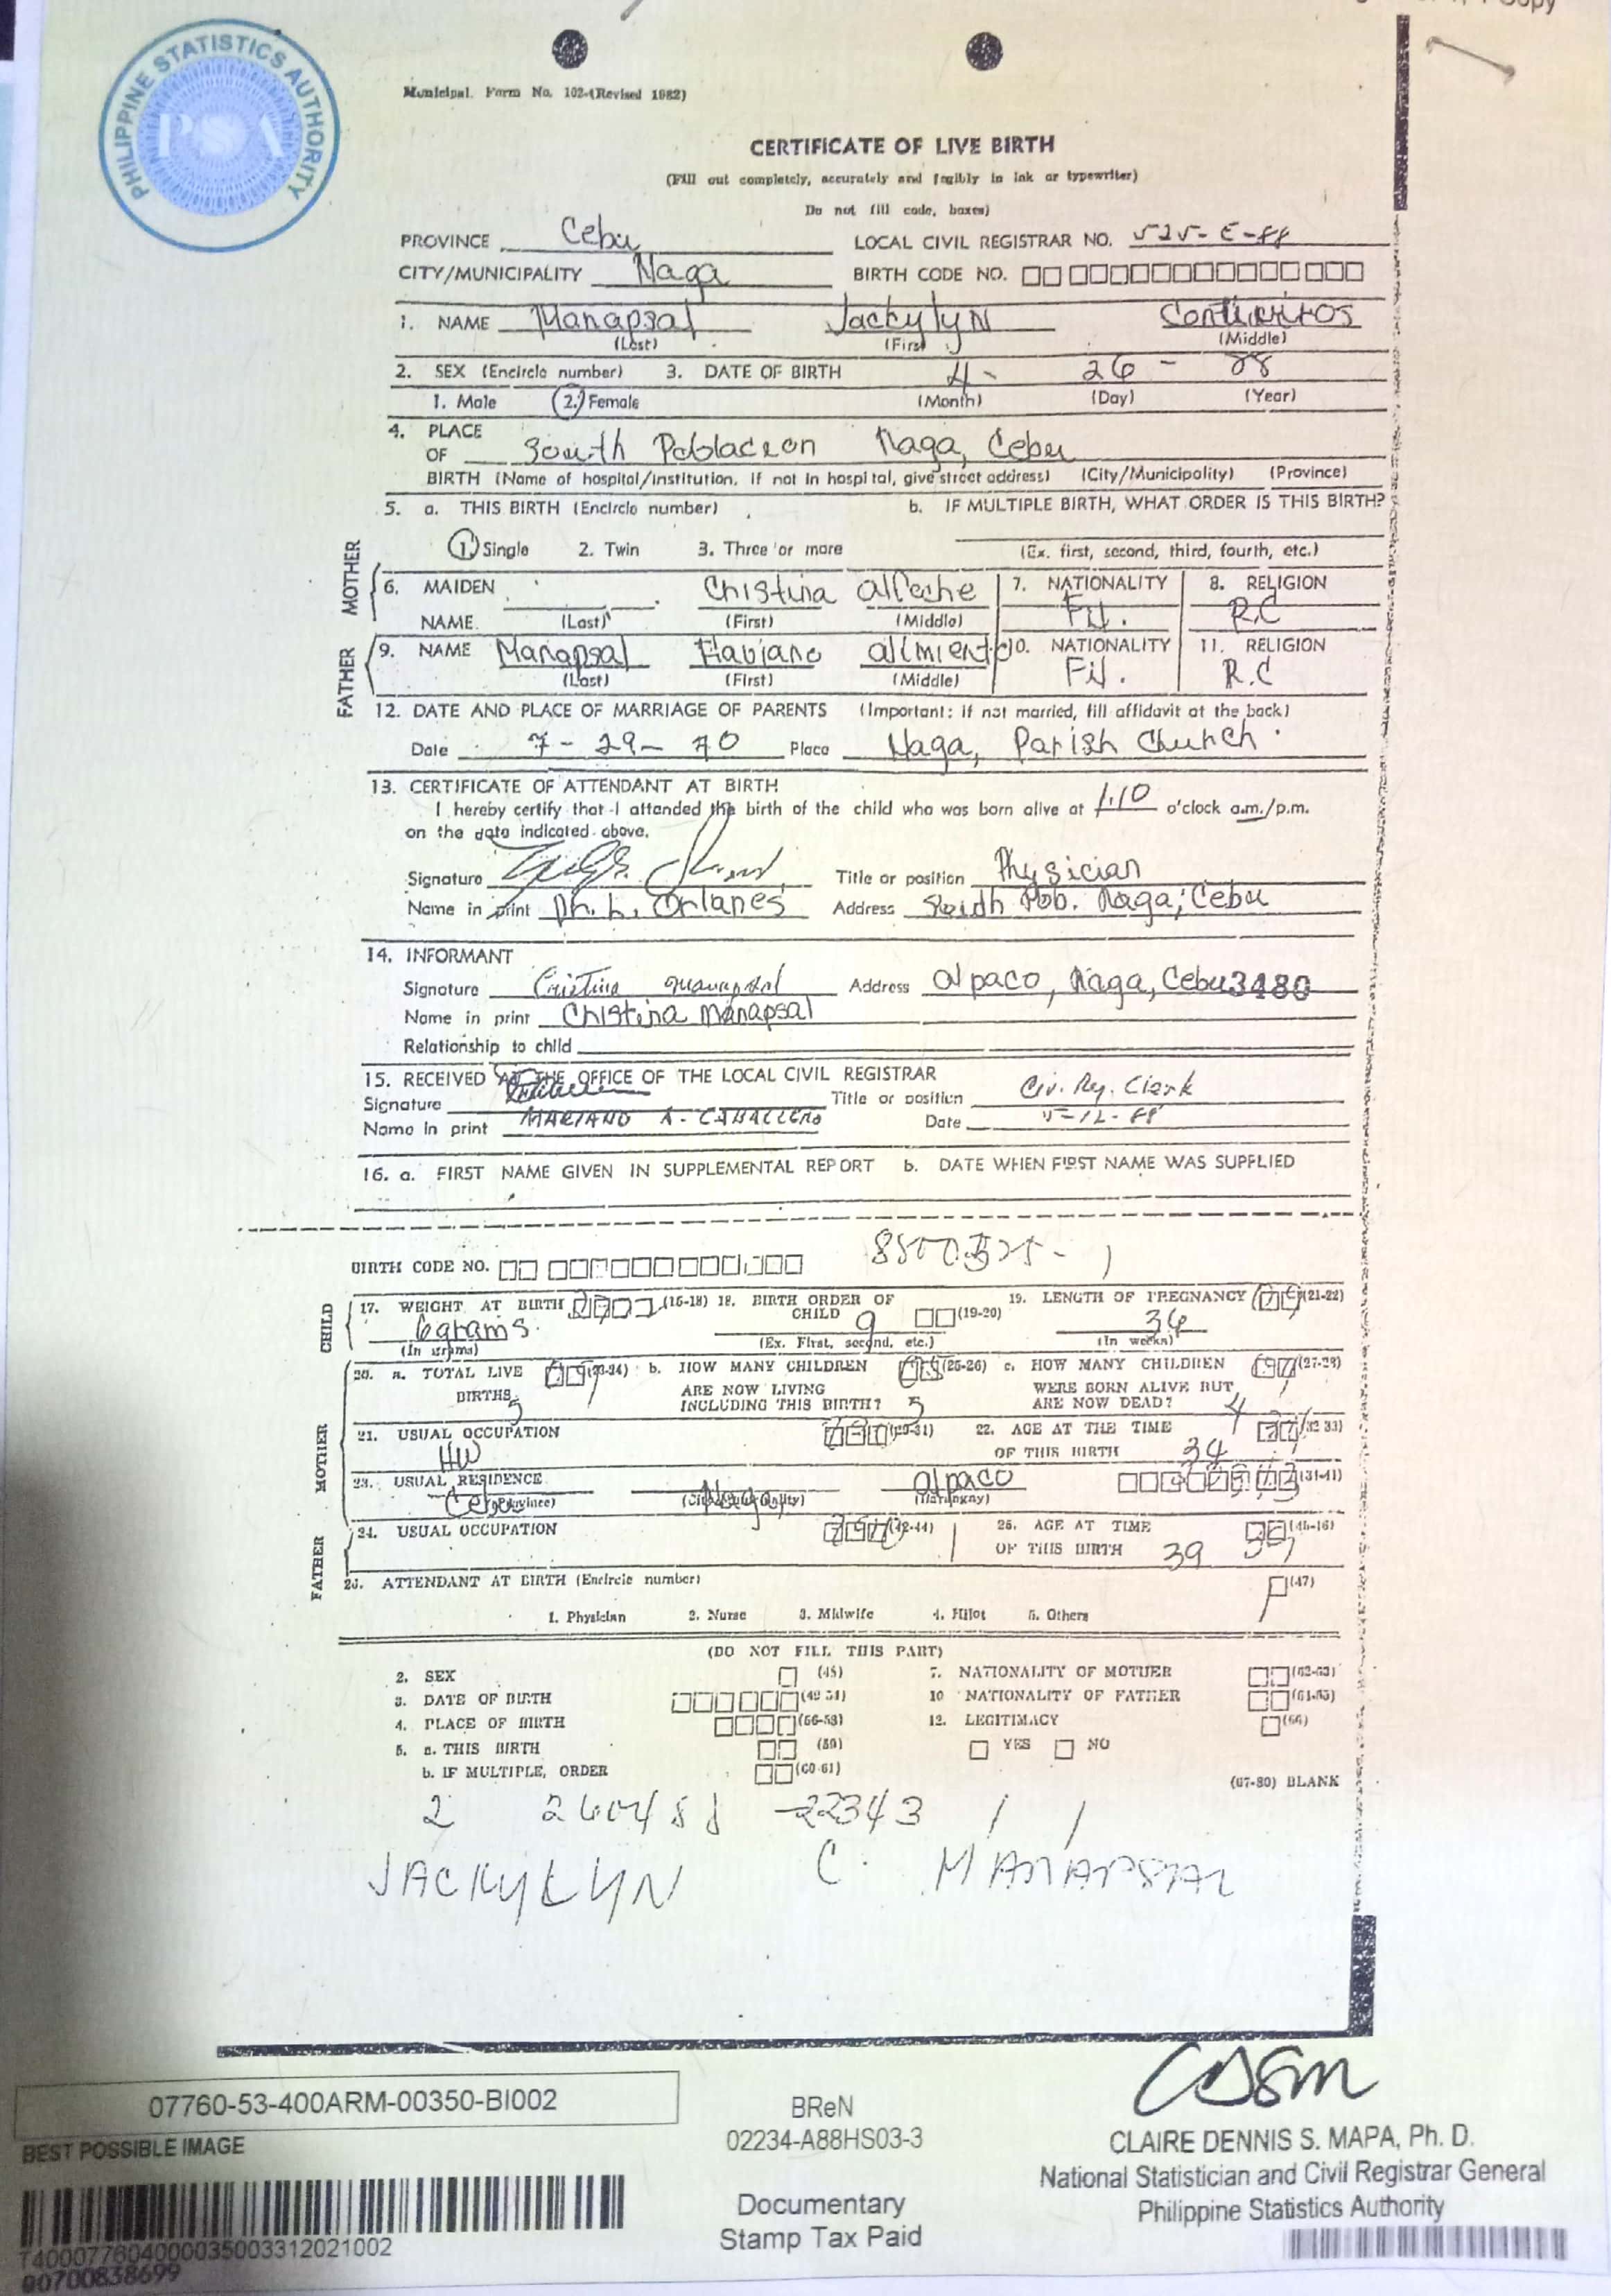 Copy
PHILIPPINE STATISTICS AUTHORITY
PSA
Municipal. Form No. 102-(Revised 1982)
CERTIFICATE OF LIVE BIRTH
(Fill out completely, accurately and legibly in ink or typewriter)
Do not fill code, boxes)
PROVINCE Cebu LOCAL CIVIL REGISTRAR NO. 525-E-88
CITY/MUNICIPALITY Naga BIRTH CODE NO.
1. NAME Manapsal Jackylyn
(Last) (First) (Middle)
2. SEX (Encircle number) 3. DATE OF BIRTH 4- 26 - 88
1. Male 2. Female (Month) (Day) (Year)
4. PLACE OF South Poblacion Naga, Cebu
BIRTH (Name of hospital/institution. if not in hospital, give street address) (City/Municipality) (Province)
5. a. THIS BIRTH (Encircle number) b. IF MULTIPLE BIRTH, WHAT ORDER IS THIS BIRTH?
1. Single 2. Twin 3. Three or more (Ex. first, second, third, fourth, etc.)
MOTHER
6. MAIDEN Christina 7. NATIONALITY 8. RELIGION
NAME. (Last) (First) (Middle) Fil. R.C
FATHER
9. NAME Manapsal Flaviano 10. NATIONALITY 11. RELIGION
(Last) (First) (Middle) Fil. R.C
12. DATE AND PLACE OF MARRIAGE OF PARENTS (Important: if not married, fill affidavit at the back)
Date 7-29-70 Place Naga, Parish Church
13. CERTIFICATE OF ATTENDANT AT BIRTH
I hereby certify that I attended the birth of the child who was born alive at 1:10 o'clock a.m./p.m.
on the date indicated above.
Signature Title or position Physician
Name in print L. Orlanes Address Pob. Naga, Cebu
14. INFORMANT
Signature Cristina Manapsal Address Alpaco, Naga, Cebu 3480
Name in print Christina Manapsal
Relationship to child
15. RECEIVED AT THE OFFICE OF THE LOCAL CIVIL REGISTRAR
Signature Title or position Civ. Reg. Clerk
Name in print MARIANO A. CABALLERO Date 5-12-88
16. a. FIRST NAME GIVEN IN SUPPLEMENTAL REPORT b. DATE WHEN FIRST NAME WAS SUPPLIED
BIRTH CODE NO.
CHILD
17. WEIGHT AT BIRTH (15-18) 18. BIRTH ORDER OF CHILD 9 (19-20) 19. LENGTH OF PREGNANCY (21-22)
6grams. 36
(In grams) (Ex. First, second, etc.) (In weeks)
MOTHER
20. a. TOTAL LIVE (23-24) b. HOW MANY CHILDREN (25-26) c. HOW MANY CHILDREN (27-28)
BIRTHS 5 ARE NOW LIVING WERE BORN ALIVE BUT
INCLUDING THIS BIRTH? 5 ARE NOW DEAD? 4
21. USUAL OCCUPATION (29-31) 22. AGE AT THE TIME (32-33)
HW OF THIS BIRTH 34
23. USUAL RESIDENCE Alpaco (34-41)
Cebu Naga
(Province) (City/Municipality) (Barangay)
FATHER
24. USUAL OCCUPATION (42-44) 25. AGE AT TIME (45-46)
OF THIS BIRTH 39
26. ATTENDANT AT BIRTH (Encircle number) (47)
1. Physician 2. Nurse 3. Midwife 4. Hilot 5. Others
(DO NOT FILL THIS PART)
2. SEX (48) 7. NATIONALITY OF MOTHER (62-63)
3. DATE OF BIRTH (49-54) 10 NATIONALITY OF FATHER (64-65)
4. PLACE OF BIRTH (55-58) 12. LEGITIMACY (66)
5. a. THIS BIRTH (59) YES NO
b. IF MULTIPLE, ORDER (60-61)
(67-80) BLANK
2 260488 22343 1 1
JACKYLYN C. MANAPSAL
07760-53-400ARM-00350-BI002
BEST POSSIBLE IMAGE
T400077604000035003312021002
00700838699
BReN
02234-A88HS03-3
Documentary
Stamp Tax Paid
CLAIRE DENNIS S. MAPA, Ph. D.
National Statistician and Civil Registrar General
Philippine Statistics Authority